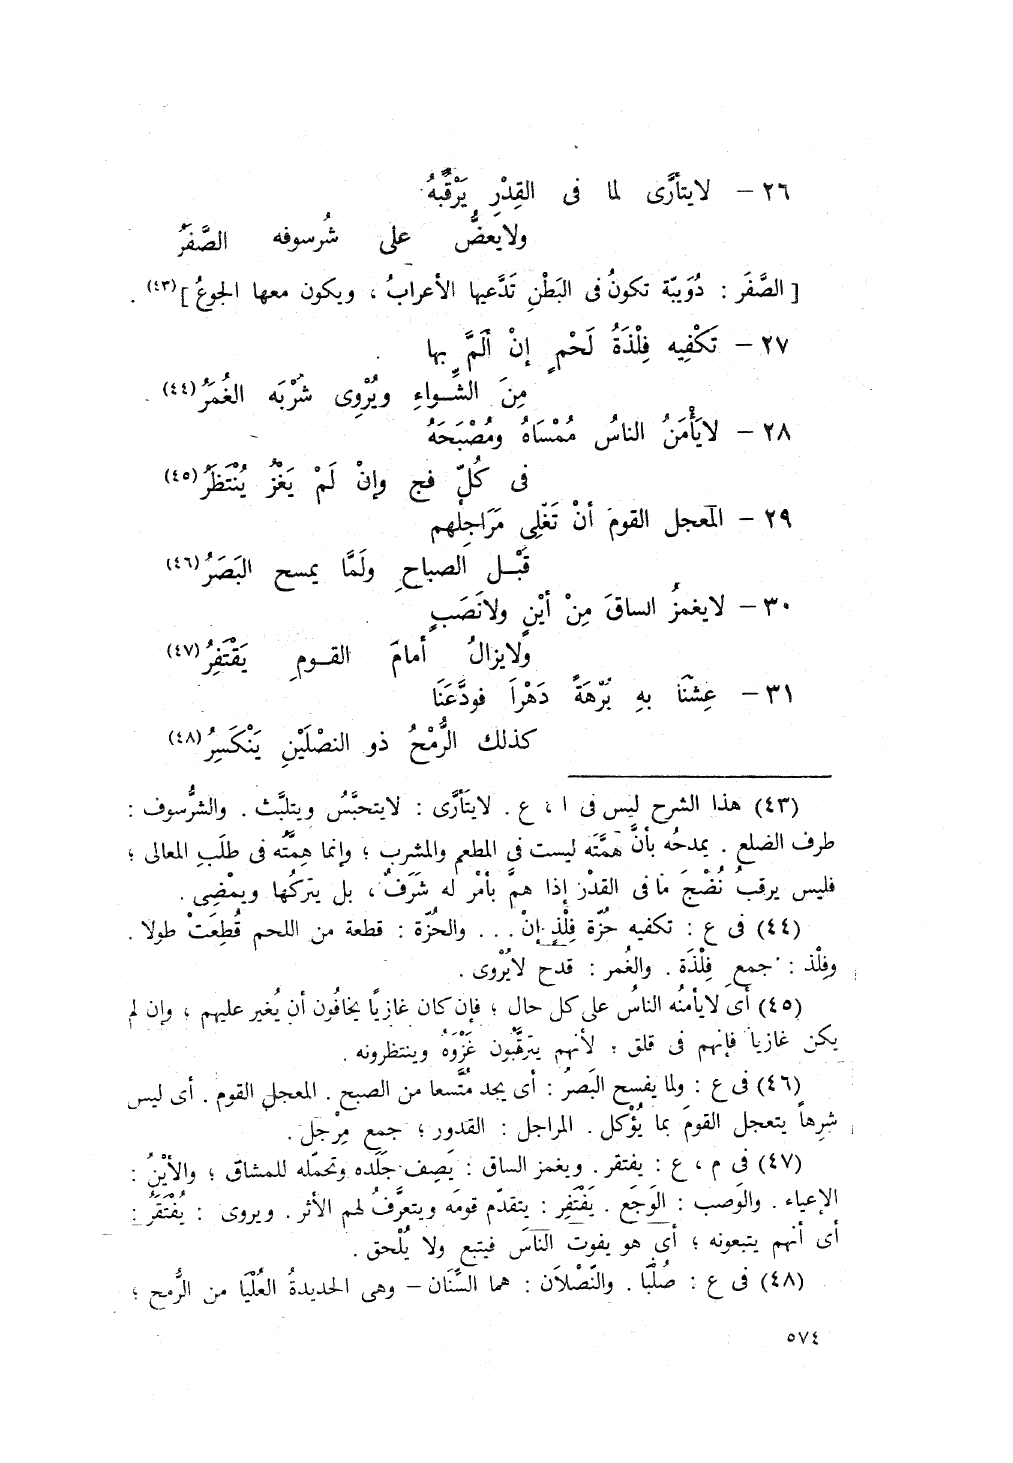 ٢٦ – لايتأرَّى لما فى القِدْرِ يَرْقُبُهُ
ولايعضُّ على شُرسوفه الصَّفَرُ
[ الصَّفَر : دُوَيبّة تكونُ فى البَطْنِ تَدَّعيها الأعرابُ ، ويكون معها الجوعُ ](٤٣) .
٢٧ – تَكْفِيه فِلْذَةُ لَحْمٍ إنْ ألَمَّ بها
مِنَ الشِّواءِ ويُرْوِى شُرْبَه الغُمَرُ(٤٤) .
٢٨ – لايَأْمَنُ الناسُ مُمْسَاهُ ومُصْبَحَهُ
فى كُلّ فج وإنْ لَمْ يَغْزُ يُنْتَظَرُ(٤٥)
٢٩ – المعجل القومَ أنْ تَغْلِى مَرَاجِلُهم
قَبْل الصباحِ ولَمَّا يمسح البَصَرُ(٤٦)
٣٠ – لايغمزُ الساقَ مِنْ أيْنٍ ولانَصَبٍ
ولايزالُ أمامَ القومِ يَقْتَفِرُ(٤٧)
٣١ – عِشْنَا بهِ بُرْهَةً دَهْراً فودَّعَنَا
كذلك الرُّمْحُ ذو النصْلَيْنِ يَنْكَسِرُ(٤٨)
(٤٣) هذا الشرح ليس فى ا ، ع . لايَتَأرَّى : لايتحبَّسُ ويتلبَّث . والشرُّسوف :
طرف الضلع . يمدحُه بأنَّ همَّتَه ليست فى المطعم والمشرب ؛ وإنما هِمَّتُه فى طلَبِ المعالى ؛
فليس يرقبُ نُضْجَ مافى القدْر إذا همَّ بأمْر له شَرَفٌ ، بل يتركُها ويمْضِى .
(٤٤) فى ع : تكفيه حُزّة فِلْذٍ إنْ . . . والحُزّة : قطعة من اللحم قُطِعَتْ طولا .
وفِلْذ : جمع فِلْذَة . والغُمر : قدح لايُرْوى .
(٤٥) أى لايأمنُه الناسُ على كل حال ؛ فإن كان غازيًا يخافُون أن يُغير عليهم ، وإن لم
يكن غازياً فإنهم فى قلق ، لأنهم يترقَّبُون غَزْوَهُ وينتظرونه .
(٤٦) فى ع : ولما يفسح البَصرُ : أى يجد مُتَّسعا من الصبح . المعجل القوم . أى ليس
شرِهاً يتعجل القومَ بما يُؤْكل . المراجل : القدور ؛ جمع مِرْجَل .
(٤٧) فى م ، ع : يفتقر . ويغمز الساق : يَصِف جَلَده وتحمّله للمشاقّ ؛ والأيْنُ :
الإعياء . والوَصب : الوَجَع . يَقْتَفِر : يتقدّم قومَه ويتعرَّفُ لهم الأثر . ويروى : يُقْتَفَرُ :
أى أنهم يتبعونه ؛ أى هو يفوت الناسَ فيتبع ولا يُلْحق .
(٤٨) فى ع : صُلْبًا . والنّصْلاَن : هما السِّنَان – وهى الحديدةُ العُلْيَا من الرُّمح ؛
٥٧٤